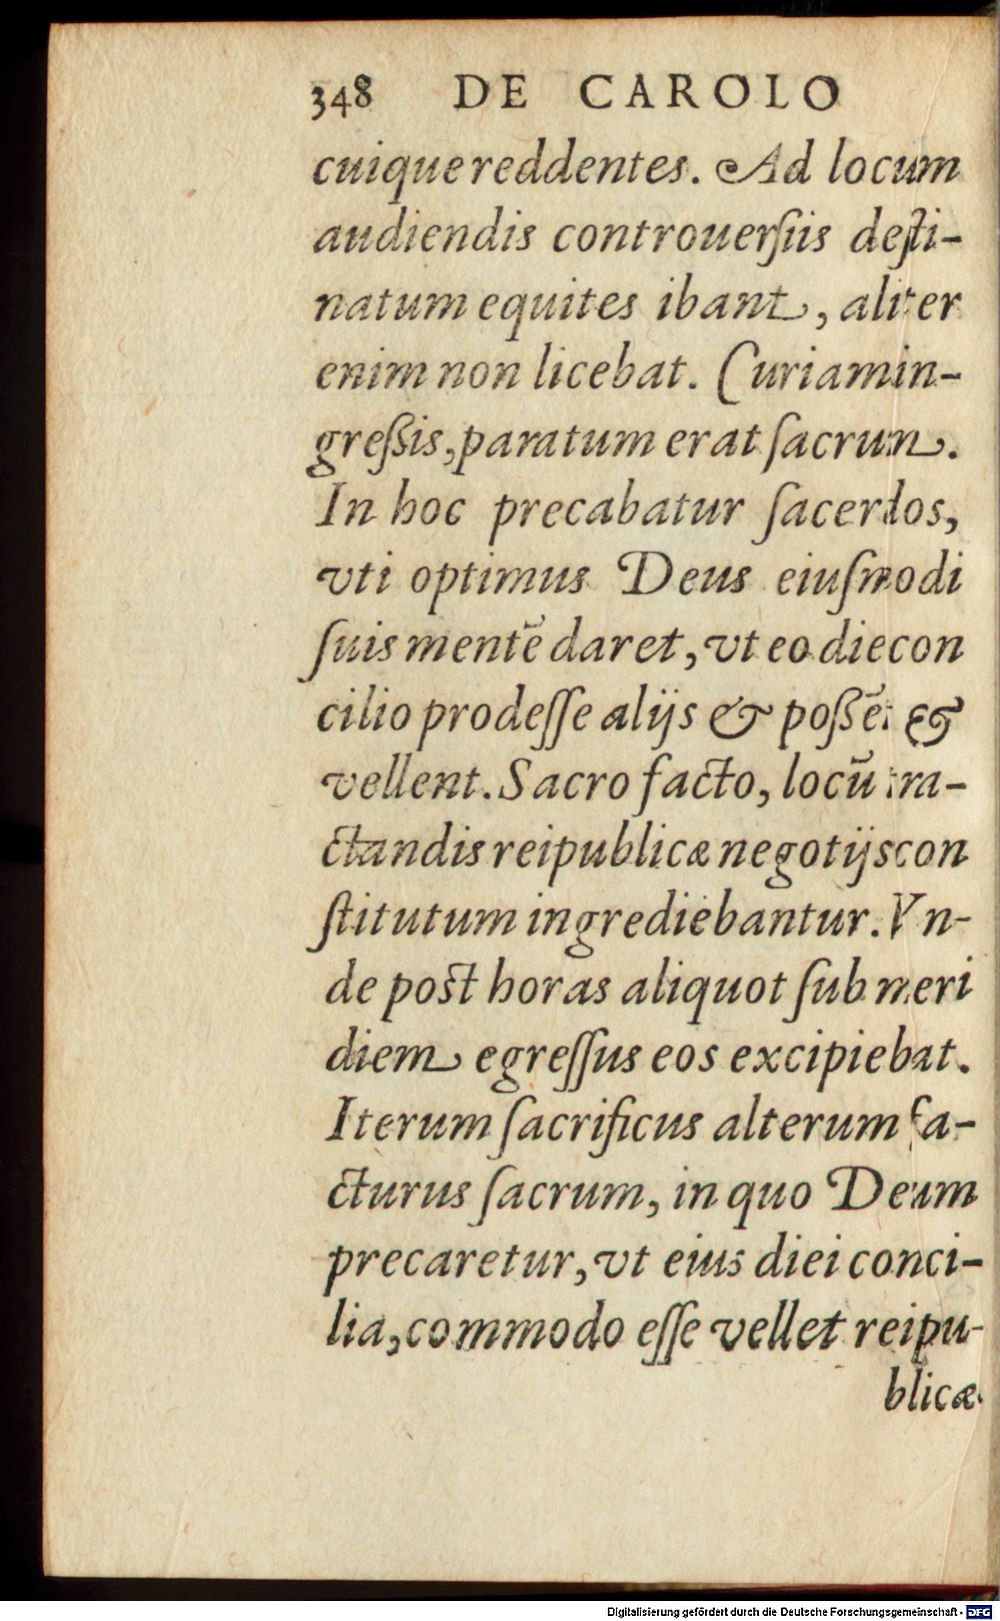 348 DE CAROLO
cuique reddentes. Ad locum
audiendis controuerſiis deſti-
natum equites ibant, aliter
enim non licebat. Curiam in-
greßis, paratum erat ſacrum.
In hoc precabatur ſacerdos,
vti optimus Deus eiuſmodi
ſuis mentē daret, vt eo die con
cilio prodeſſe alijs & poßēt &
vellent. Sacro facto, locū tra-
ctandis reipublicæ negotijs con
ſtitutum ingrediebantur. Vn-
de post horas aliquot ſub meri
diem egreſſus eos excipiebat.
Iterum ſacrificus alterum fa-
cturus ſacrum, in quo Deum
precaretur, vt eius diei conci-
lia, commodo eſſe vellet reipu-
blicæ.
Digitalisierung gefördert durch die Deutsche Forschungsgemeinschaft - DFG